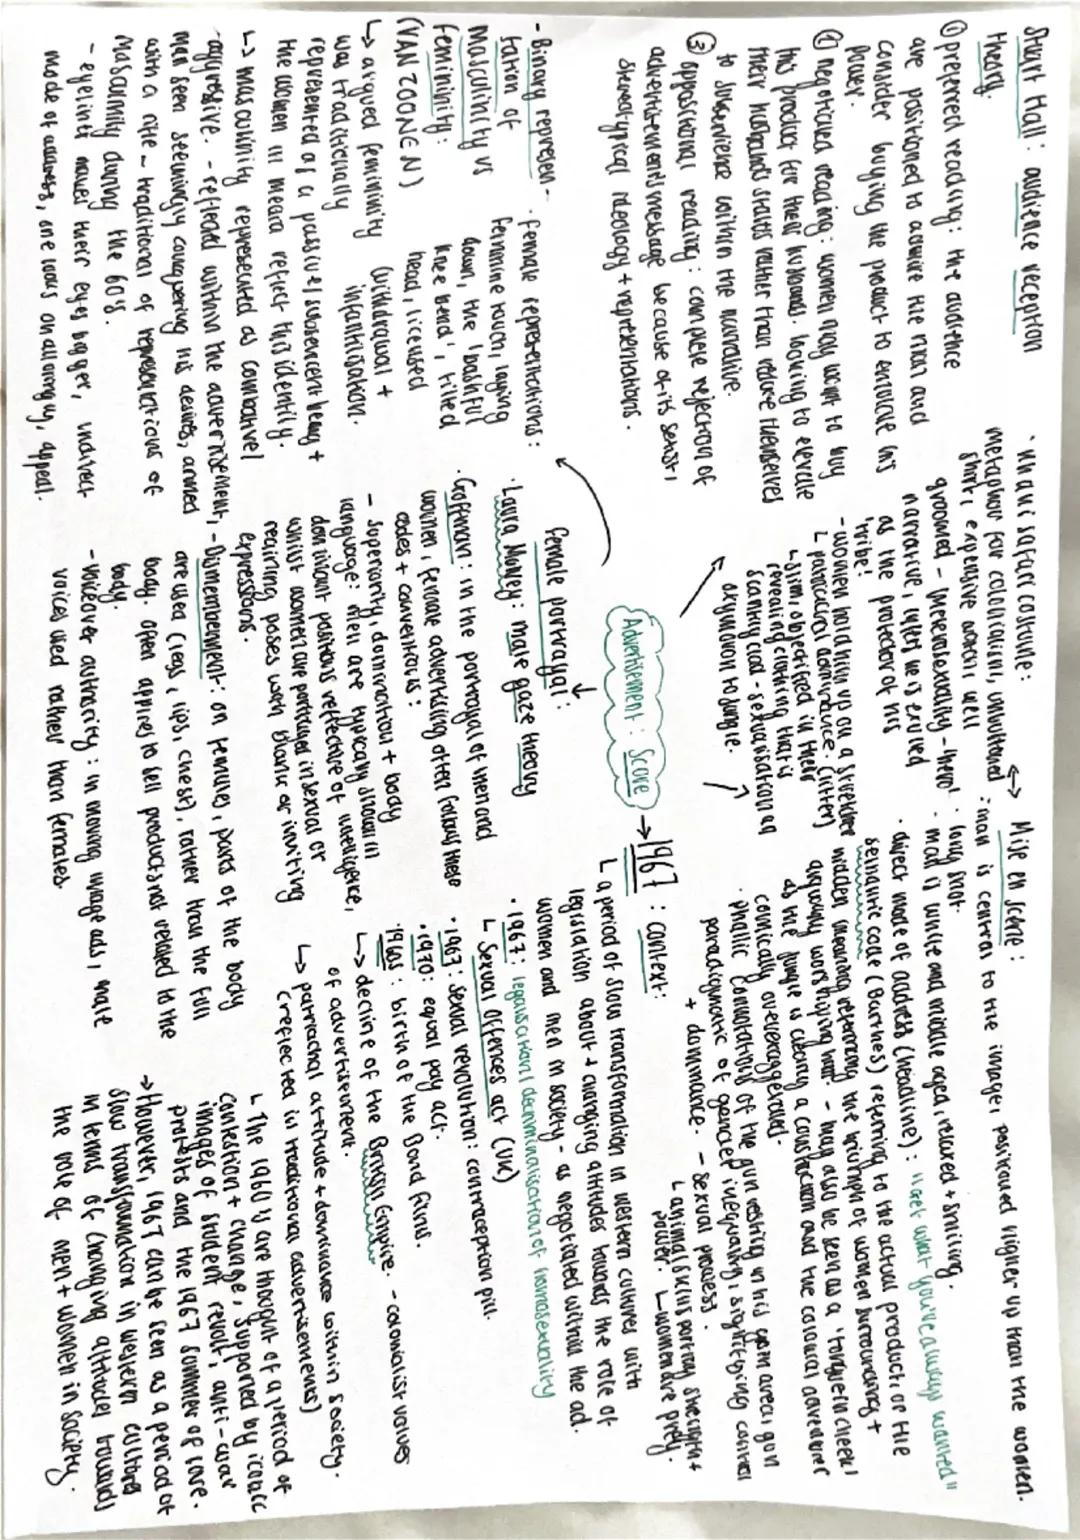 Stuart Hall: audience reception
theory.
① preferred reading: the audience
are positioned to admire the man and
consider buying the product to emulate his
power.
② negotiated reading: women may want to buy
this product for their husbands. looking to elevate
their husbands status rather than reduce themselves
to subservience within the narrative.
③ oppositional reading: complete rejection of
advertisements message because of its sexist,
stereotypical ideology + representations.
- Binary represen-
tation of
masculinity vs
femininity:
(VAN ZOONEN)
↳ argued femininity
was traditionally
represented as a passive/subservient being +
the women in media reflect this identity.
↳ masculinity represented as combative/
aggressive. - reflected within the advertisement,
man seen seemingly conquering his desires, armed
with a rifle - traditional of representations of
masculinity during the 60's.
- eyeliner makes their eyes bigger, indirect
mode of address, one looks on allongly, appeal.
· female representations:
feminine touch, laying
down, the 'bashful
knee bend', tilted
head, licensed
withdrawal +
infantilisation.
· Khaki safari costume:
metaphor for colonialism, unbuttoned
shirt, expensive watch, well
groomed - (intertextually - 'hero'
narrative, infers he is exuded
as the protector of his
'tribe'.
- women hold him up on a stretcher
↳ patriarchal dominance. (litter)
↳ slim, objectified in their
revealing clothing that is
scantily clad - sexualisation as
oxymoron to jungle.
Advertisement: Score
female portrayal:
· Laura Mulvey: male gaze theory
· Goffman: in the portrayal of men and
women, female advertising often follows these
codes + conventions:
- superiority, domination + body
language: men are typically shown in
dominant positions reflective of intelligence,
whilst women are portrayed in sexual or
reclining poses with blank or inviting
expressions.
- Dismemberment: on females, parts of the body
are used (legs, lips, chest), rather than the full
body. often applies to sell products not related to the
body.
- Voiceover authority: in moving image ads, male
voices used rather than females.
↔ Mise en scene:
: man is central to the image, positioned higher up than the women.
· long shot.
· man is white and middle aged, relaxed + smiling.
· direct mode of address (headline): "get what you've always wanted"
semantic code (Barthes) referring to the actual product, or the
hidden meaning referencing the triumph of women surrounding +
arguably worshipping him. - may also be seen as a 'tongue in cheek'
as the jungle is clearly a construction and the colonial adventurer
comically overexaggerated.
· phallic connotations of the gun resting in his groin area, gun
paradigmatic of gender inequality, signifying control
+ dominance. - sexual prowess.
↳ animal skins portray strength +
power. ↳ women are prey.
→ 1967: context:
↳ a period of slow transformation in western cultures with
legislation about + changing attitudes towards the role of
women and men in society - as negotiated within the ad.
· 1967: legalisation/decriminalisation of homosexuality
↳ Sexual Offences act (UK)
· 1967: sexual revolution: contraception pill.
· 1970: equal pay act.
· 1960s: birth of the Bond films.
↳ decline of the British Empire. - colonialist values
of advertisement.
↳ patriachal attitude + dominance within society.
(reflected in traditional advertisements)
↳ The 1960's are thought of a period of
contestion + change, supported by iconic
images of student revolt, anti-war
protests and the 1967 summer of love.
→ However, 1967 can be seen as a period of
slow transformation in western cultures
in terms of changing attitudes towards
the role of men + women in society.